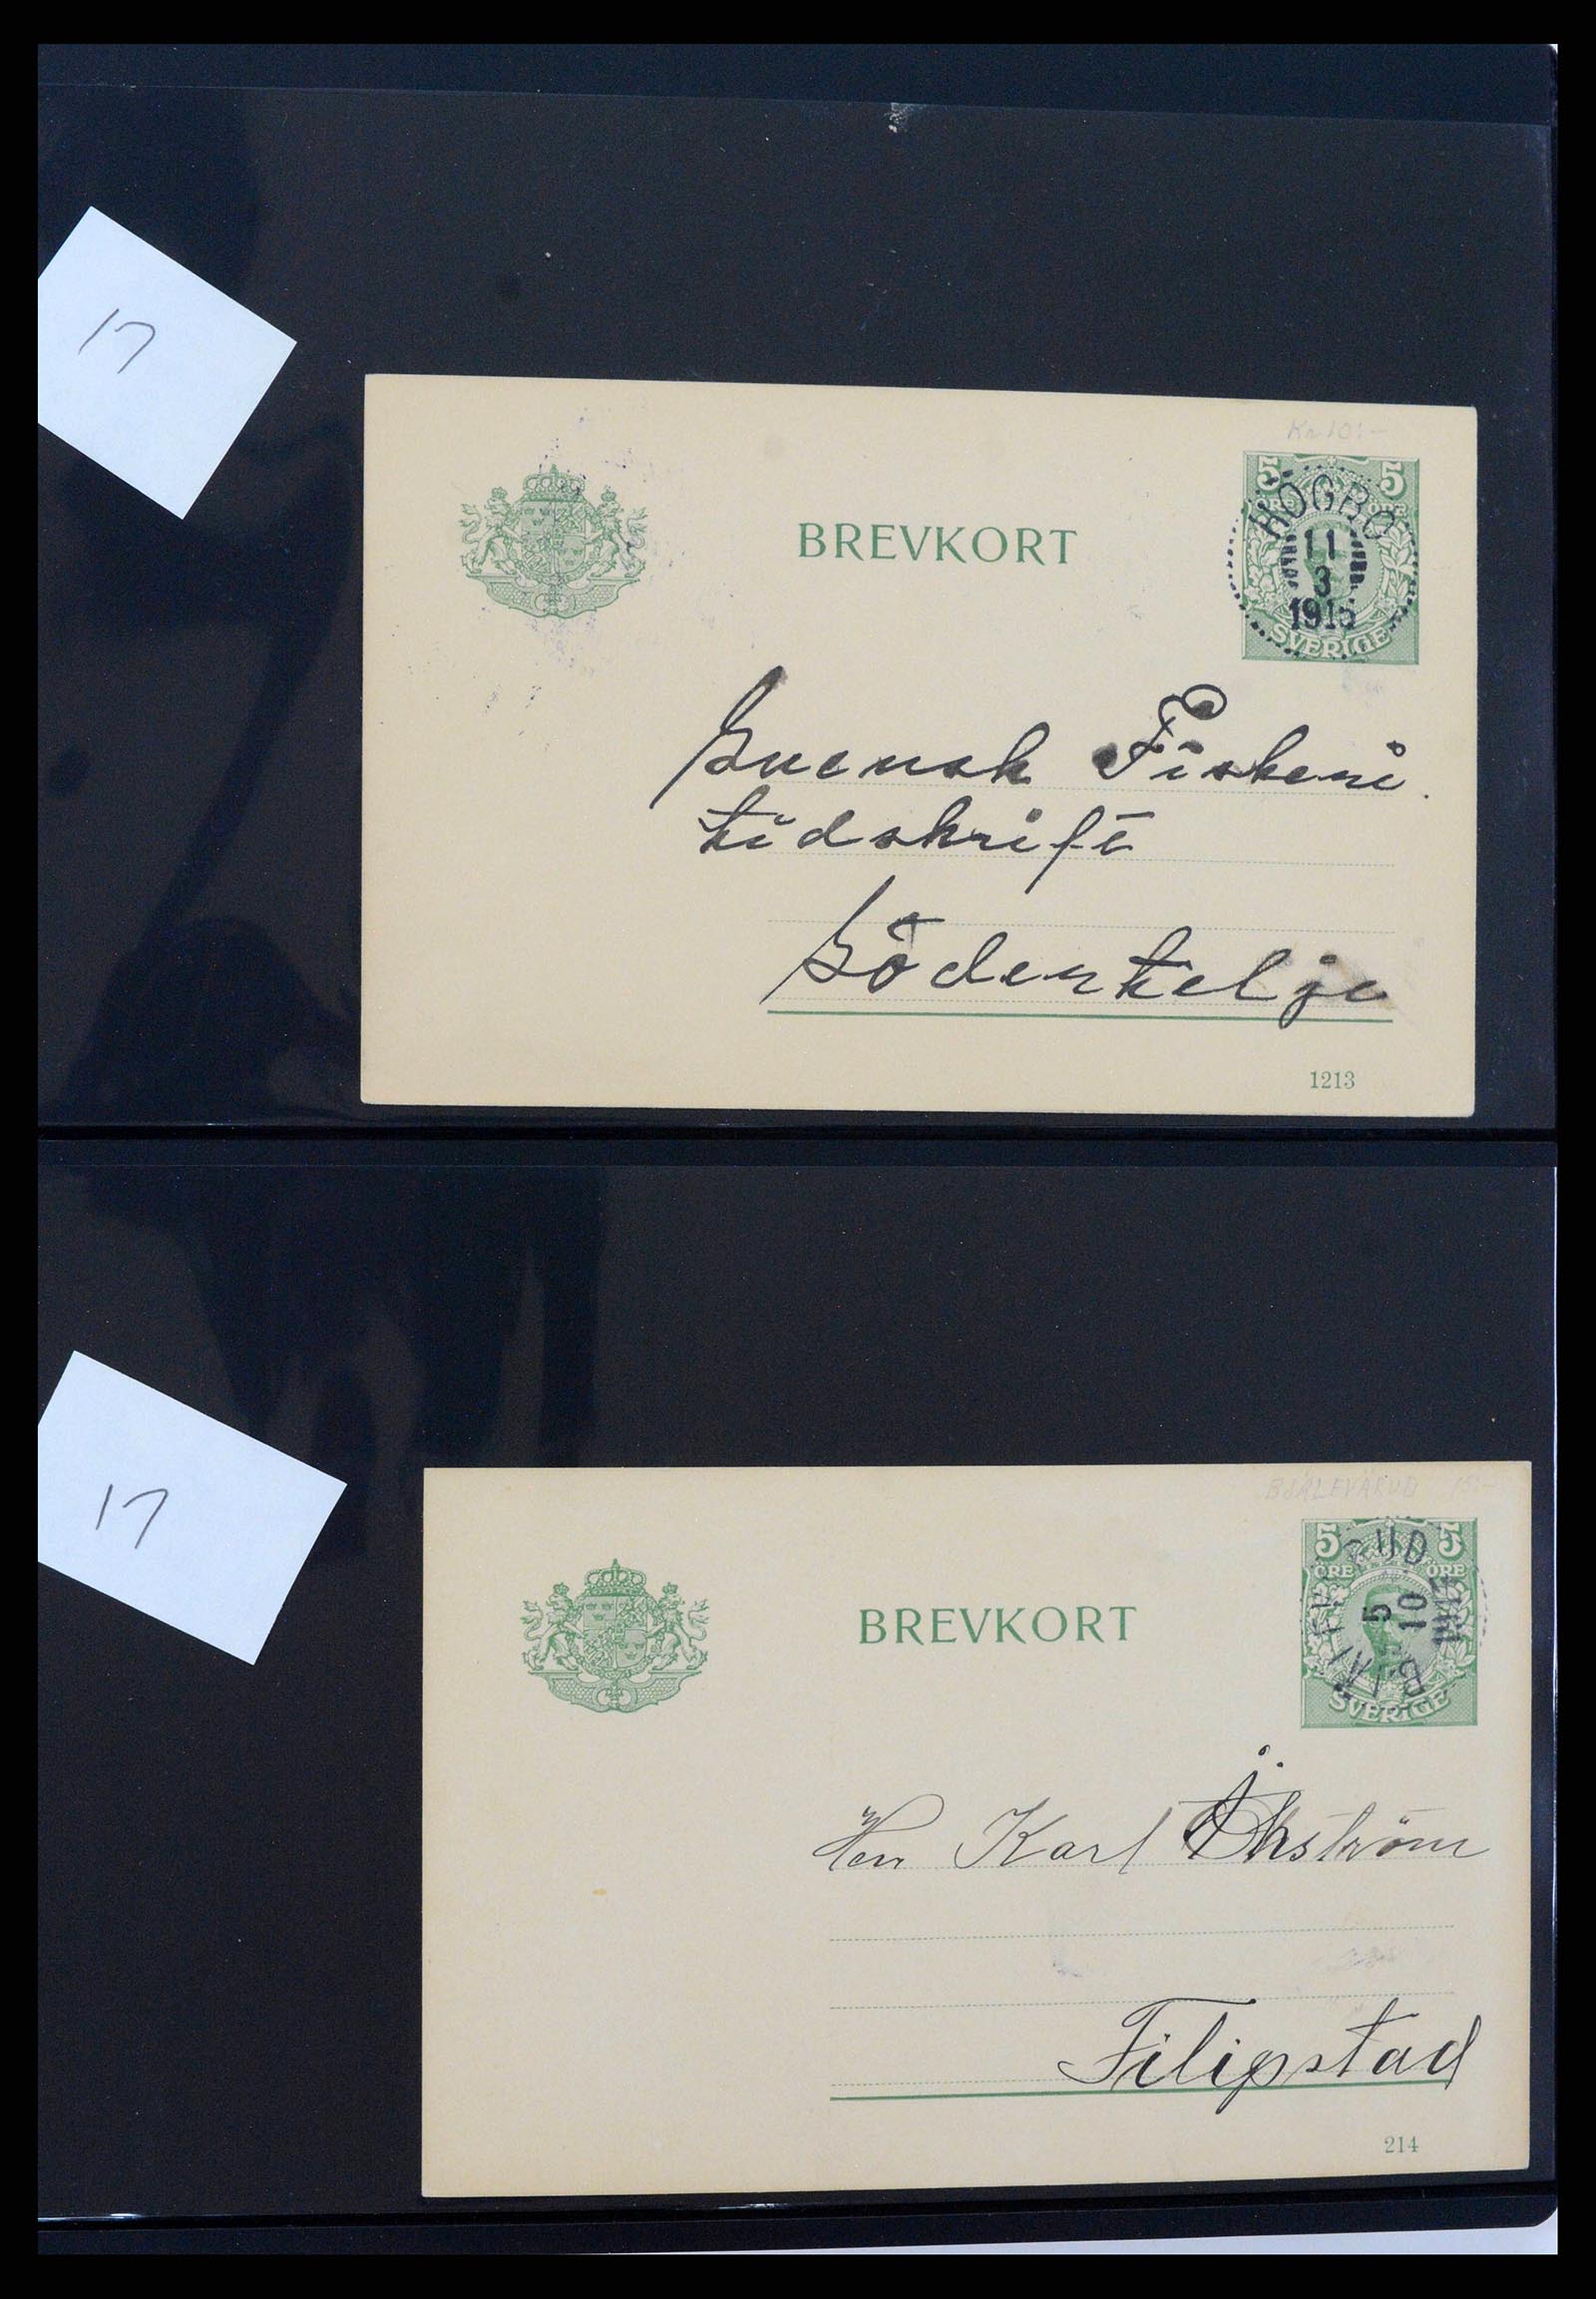 17
Kr 10:-
BREVKORT
5 5
HÖGBO
11
3
SVERIGE
Svensk Fiskeri
tidskrift
Södertelje
1213
17
BJÄLEVARUD 15:-
BREVKORT
5 5
ÖRE ÖRE
5
10
SVERIGE
Herr Karl Åkström
Filipstad
214